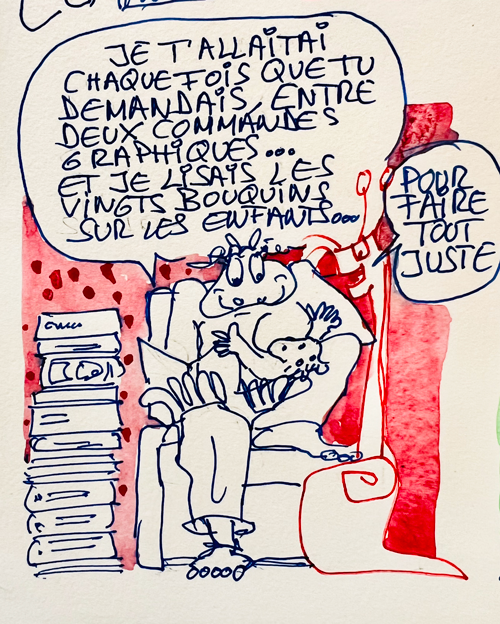 JE T'ALLAITAI
CHAQUE FOIS QUE TU
DEMANDAIS, ENTRE
DEUX COMMANDES
GRAPHIQUES...
ET JE LISAIS LES
VINGTS BOUQUINS
SUR LES ENFANTS...
POUR
FAIRE
TOUT
JUSTE